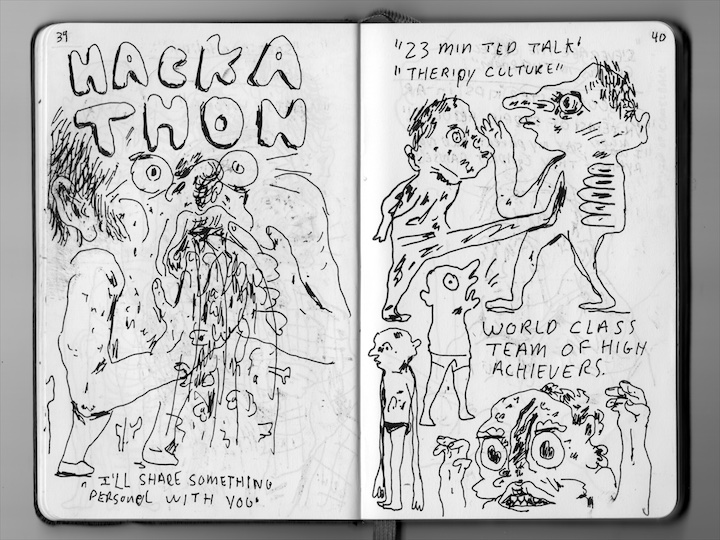 39
HACKA
THON
"I'LL SHARE SOMETHING
PERSONAL WITH YOU"
40
"23 MIN TED TALK"
"THERIPY CULTURE"
WORLD CLASS
TEAM OF HIGH
ACHIEVERS.